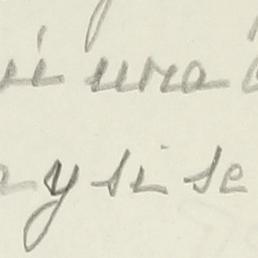 una
y si se